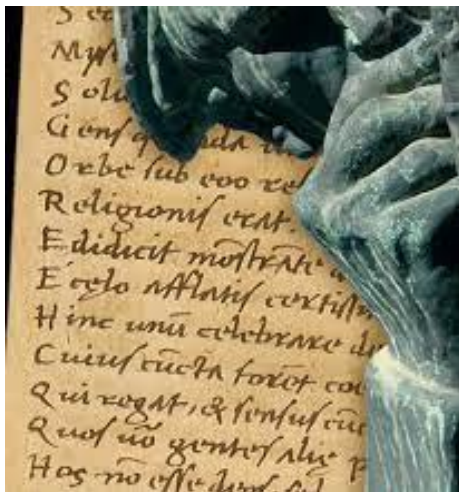 Myst
Solu
Gens q
Orbe sub eoo re
Religionis erat.
Edidicit mōstrāte
E cęlo afflatis certissi
Hinc unū celebrare de
Cuius cūcta foret co
Qui regat, & sensus cūc
Quos ūo gentes alię p
Hos nō esse deos